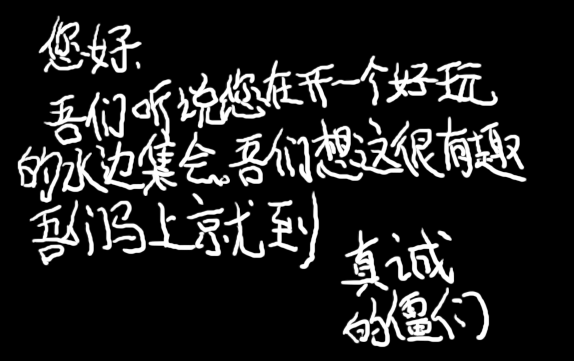 您好
吾们听说您在开一个好玩
的水边集会。吾们想这很有趣
吾们马上就到
真诚
的僵们